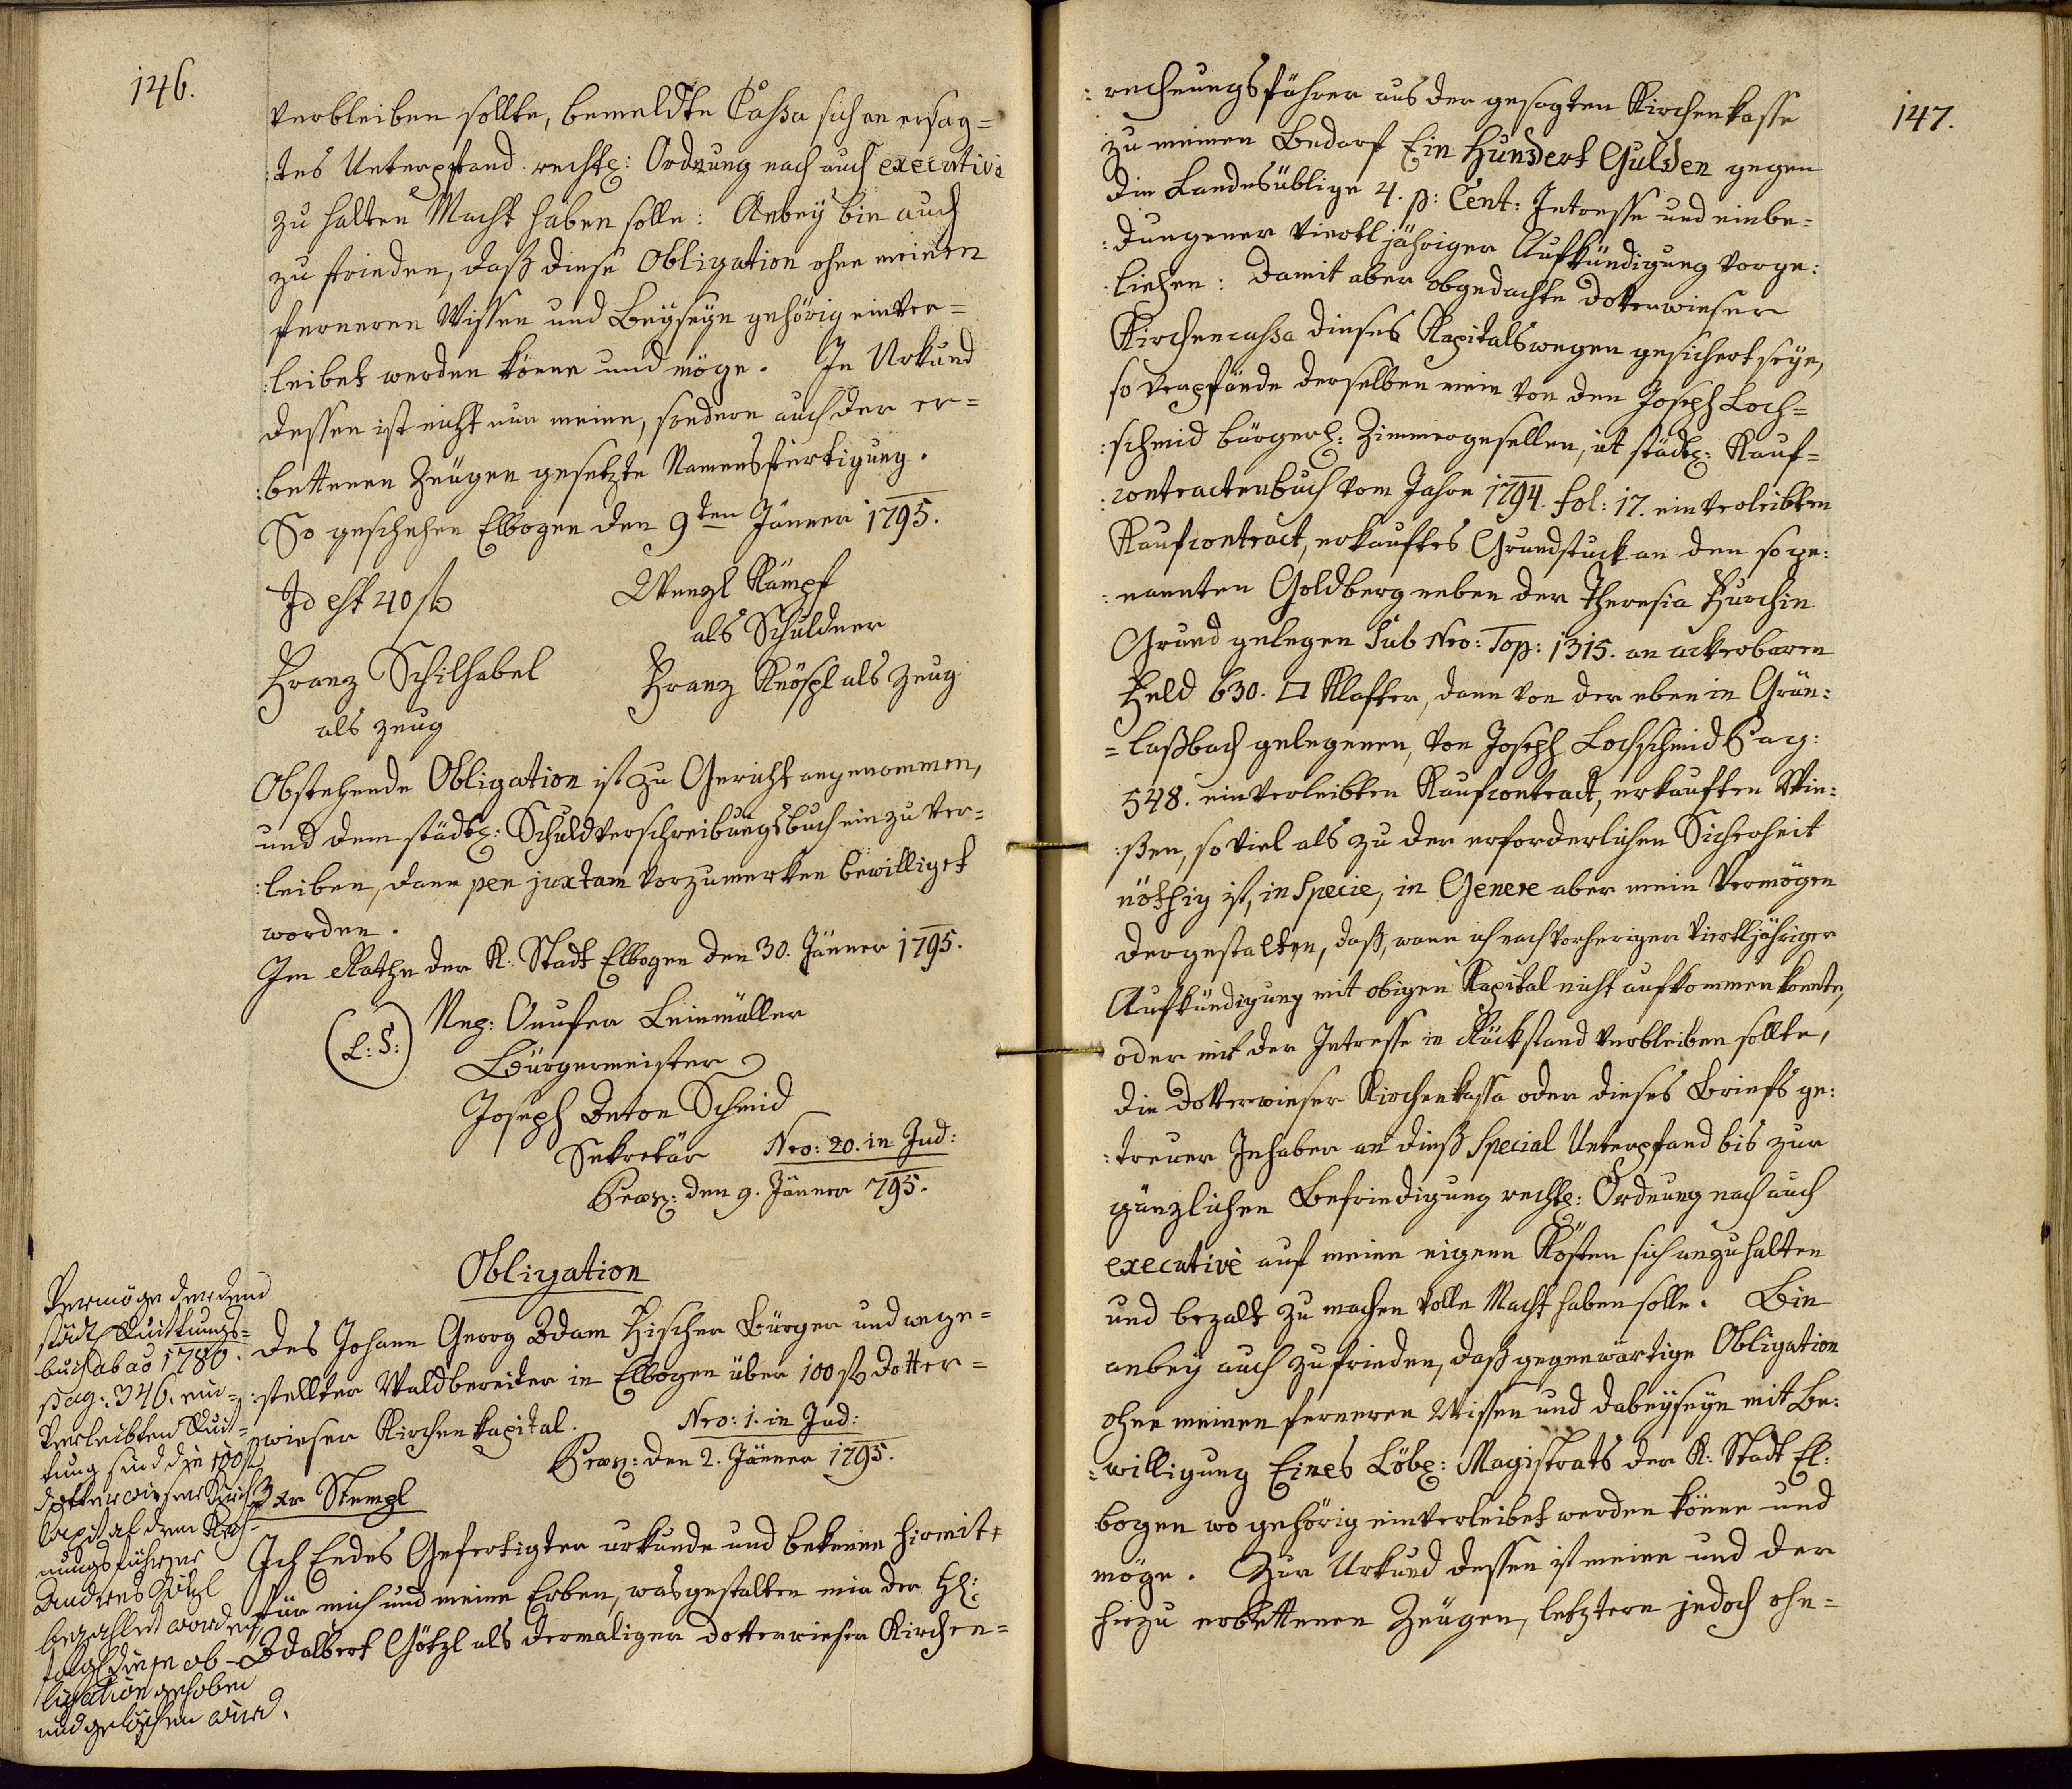 146.
verbleiben sollte, bemeldte Cassa sich an ersag=
:tes Unterpfand rechtl: Ordnung nach auch executive
zu halten Macht haben solle: Anbey bin auch
zu frieden, daß diese Obligation ohne meinen
ferneren Wissen und Beyseyn gehörig einver=
:leibet werden könne und möge. In Urkund
dessen ist nicht nur meine, sondern auch der er=
:bettenen Zeugen gesetzte Namensfertigung.
So geschehen Elbogen den 9ten Jänner 1795.
Id est 40 f
Wenzl Kämpf
als Schuldner
Franz Schilhabel
als Zeug
Franz Knöspl als Zeug
Obstehende Obligation ist zu Gericht angenommen,
und dem städt: Schuldverschreibungsbuch ein zu ver=
:leiben, dann pen juxtam vorzumerken bewilliget
worden.
Im Rathe der K: Stadt Elbogen den 30. Jänner 1795.
(L: S:)
Neg: Onufer Leinmüller
Bürgermeister
Joseph Anton Schmid
Sekretär
Nro: 20. in Jud:
Præs: den 9. Jänner 795.
Obligation
des Johann Georg Adam Fischer Bürger und ange=
:stellter Waldbereiter in Elbogen über 100 f dotter=
:wieser Kirchenkapital.
Nro: 1. in Jud:
Præs: den 2. Jänner 1795.
3 xr Stempl
Ich Endes Gefertigter urkunde und bekenne hiemit
für mich und meine Erben, was gestalten mir der H:
Adalbert Götzl als dermaliger dotterwieser Kirchen=
Vermöge der dem
städt Quittungs=
buch ab ao 1780.
pag: 346. ein=
verleibten Quit=
tung sind die 100 f
dotterwieser Kirch
Capital dem Rech=
nungsführer
Andreas Götzl
bezahlet worden
folgl diese ob=
ligation gehoben
und gelöschen wird.
147.
:rechnungsführer aus der gesagten Kirchenkasse
zu meinen Bedarf Ein Hundert Gulden gegen
die Landesüblige 4. p: Cent: Intresse und einbe=
:dungener viertljähriger Aufkündigung vorge:
:liehen: Damit aber obgedachte dotterwieser
Kirchencassa dieses Kapitals wegen gesichert seye,
so verpfände derselben mein von den Joseph Loch=
:schmid bürgerl: Zimmergesellen, in städt: Kauf=
:contractenbuch vom Jahre 1794. fol: 17. einverleibten
Kaufcontract, erkauftes Grundstuck an den soge:
:nannten Goldberg neben der Theresia Hurchin
Grund gelegen Sub Nro: Top: 1315. an ackerbaren
Feld 630. □ Klafter, dann von der eben in Grün:
=laßbach gelegenen, von Joseph Lochschmid Pag:
548. einverleibten Kaufcontract, erkauften Wie:
:ßen, so viel als zu der erforderlichen Sicherheit
nöthig ist, in Specie, in Genere aber mein Vermögen
dergestalten, daß, wann ich nach vorheriger viertljähriger
Aufkündigung mit obigen Kapital nicht aufkommen konnte,
oder mit der Intresse in Rückstand verbleiben sollte,
die dotterwieser Kirchenkassa oder dieses Briefs ge:
:treuer Inhaber an dieß Special Unterpfand bis zur
gänzlichen Befriedigung rechtl: Ordnung nach auch
executivè auf meine eigene Kösten sich anzuhalten
und bezalt zu machen volle Macht haben solle. Bin
anbey auch zufrieden, daß gegenwärtige Obligation
ohne meinen ferneren Wissen und dabeyseyn mit Be:
:willigung Eines Löbl: Magistrats der K: Stadt El:
bogen wo gehörig einverleibet werden könne und
möge. Zur Urkund dessen ist meine und der
hiezu erbettenen Zeugen, letztern jedoch ohn=